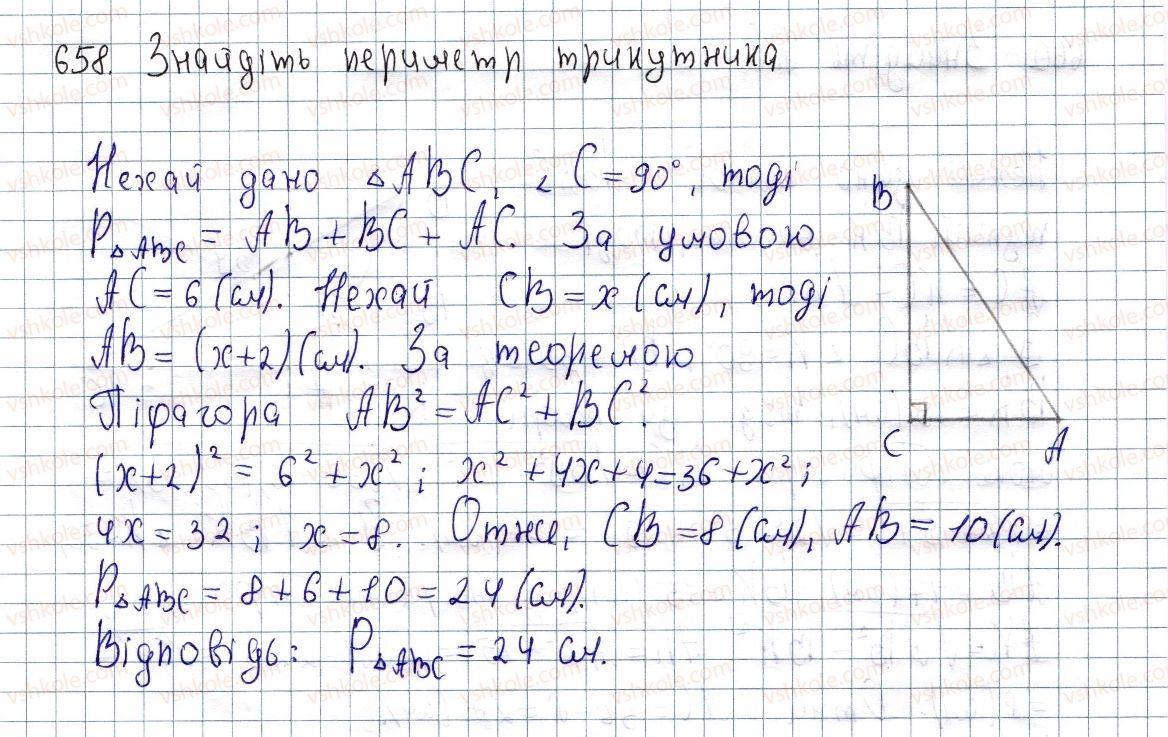 658. Знайдіть периметр трикутника
Нехай дано △ABC, ∠C=90°, тоді
P△ABC = AB+BC+AC. За умовою
AC=6 (см). Нехай CB=x (см), тоді
AB=(x+2)(см). За теоремою
Піфагора AB²=AC²+BC².
(x+2)²=6²+x²; x²+4x+4=36+x²;
4x=32; x=8. Отже, CB=8 (см), AB=10 (см).
P△ABC = 8+6+10=24 (см).
Відповідь: P△ABC = 24 см.
B
C
A
vshkole.com